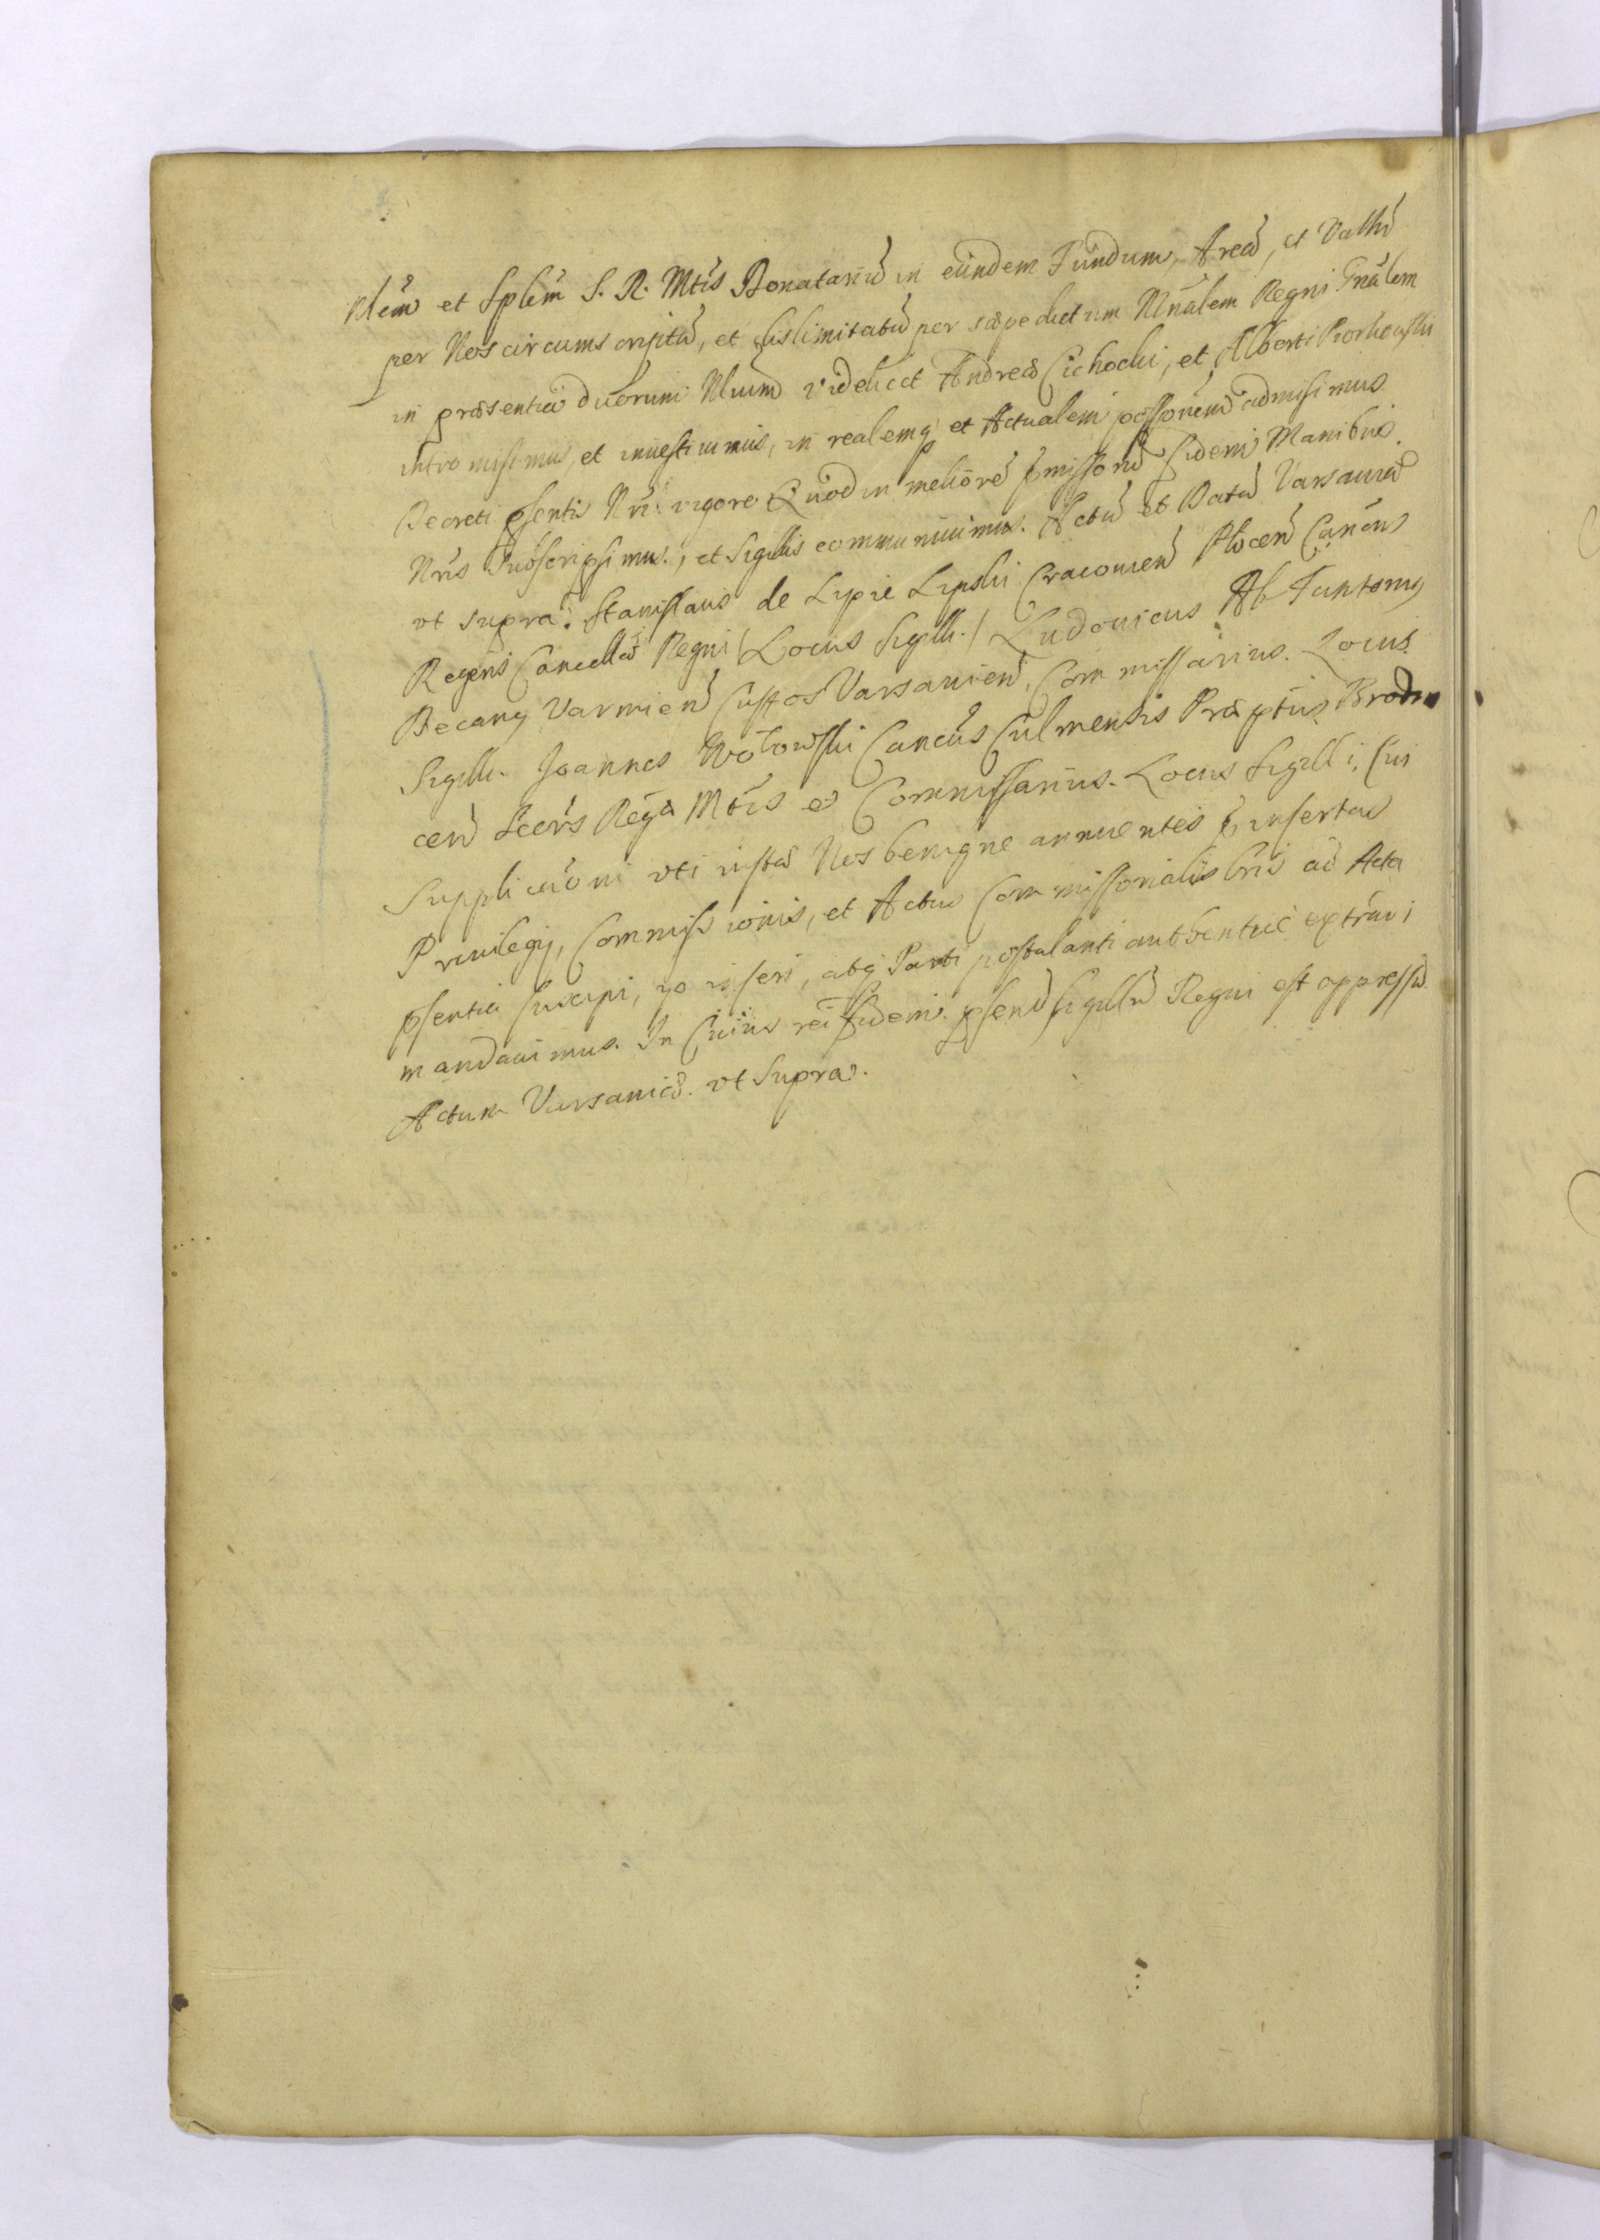 Nlem et Splem S. R. Mtis Donatariu in eundem Fundum, Area, et Vallu
per Nos circumscriptu, et dislimitatu per saepedictum Mnalem Regni Gnalem
in praesentia duorum Nlium videlicet Andreae Cichocki, et Alberti Piorkowski
intromisimus, et inuestiuimus, in realemq et Actualem possonem admisimus
Decreti psentis Nri vigore Quod in meliore pmissoru fidem Manibus
Nris subscripsimus, et Sigillis communiuimus. Actu et Datu Varsauiae
vt supra. Stanislaus de Lipie Lipski Cracouien Plocen Canonus
Regens Cancellae Regni / Locus Sigilli. / Ludouicus Ab Fantonus
Decanus Varmien Custos Varsauien, Commissarius. Locus
Sigilli. Joannes Wolowski Cancus Culmensis Praeptus Brodni
cen Secrs Regae Mtis et Commissarius. Locus Sigilli, Cui
Supplicaoni vti iustae Nos benigne annuentes pinsertae
Priuilegij, Commissionis, et Actus Commissorialis Bris ad Acta
psentia suscipi, inseri, atq Parti postulanti authentice extradi
mandauimus. In Cuius rei fidem psen Sigillu Regni est appressu.
Actum Varsauiae. vt Supra.